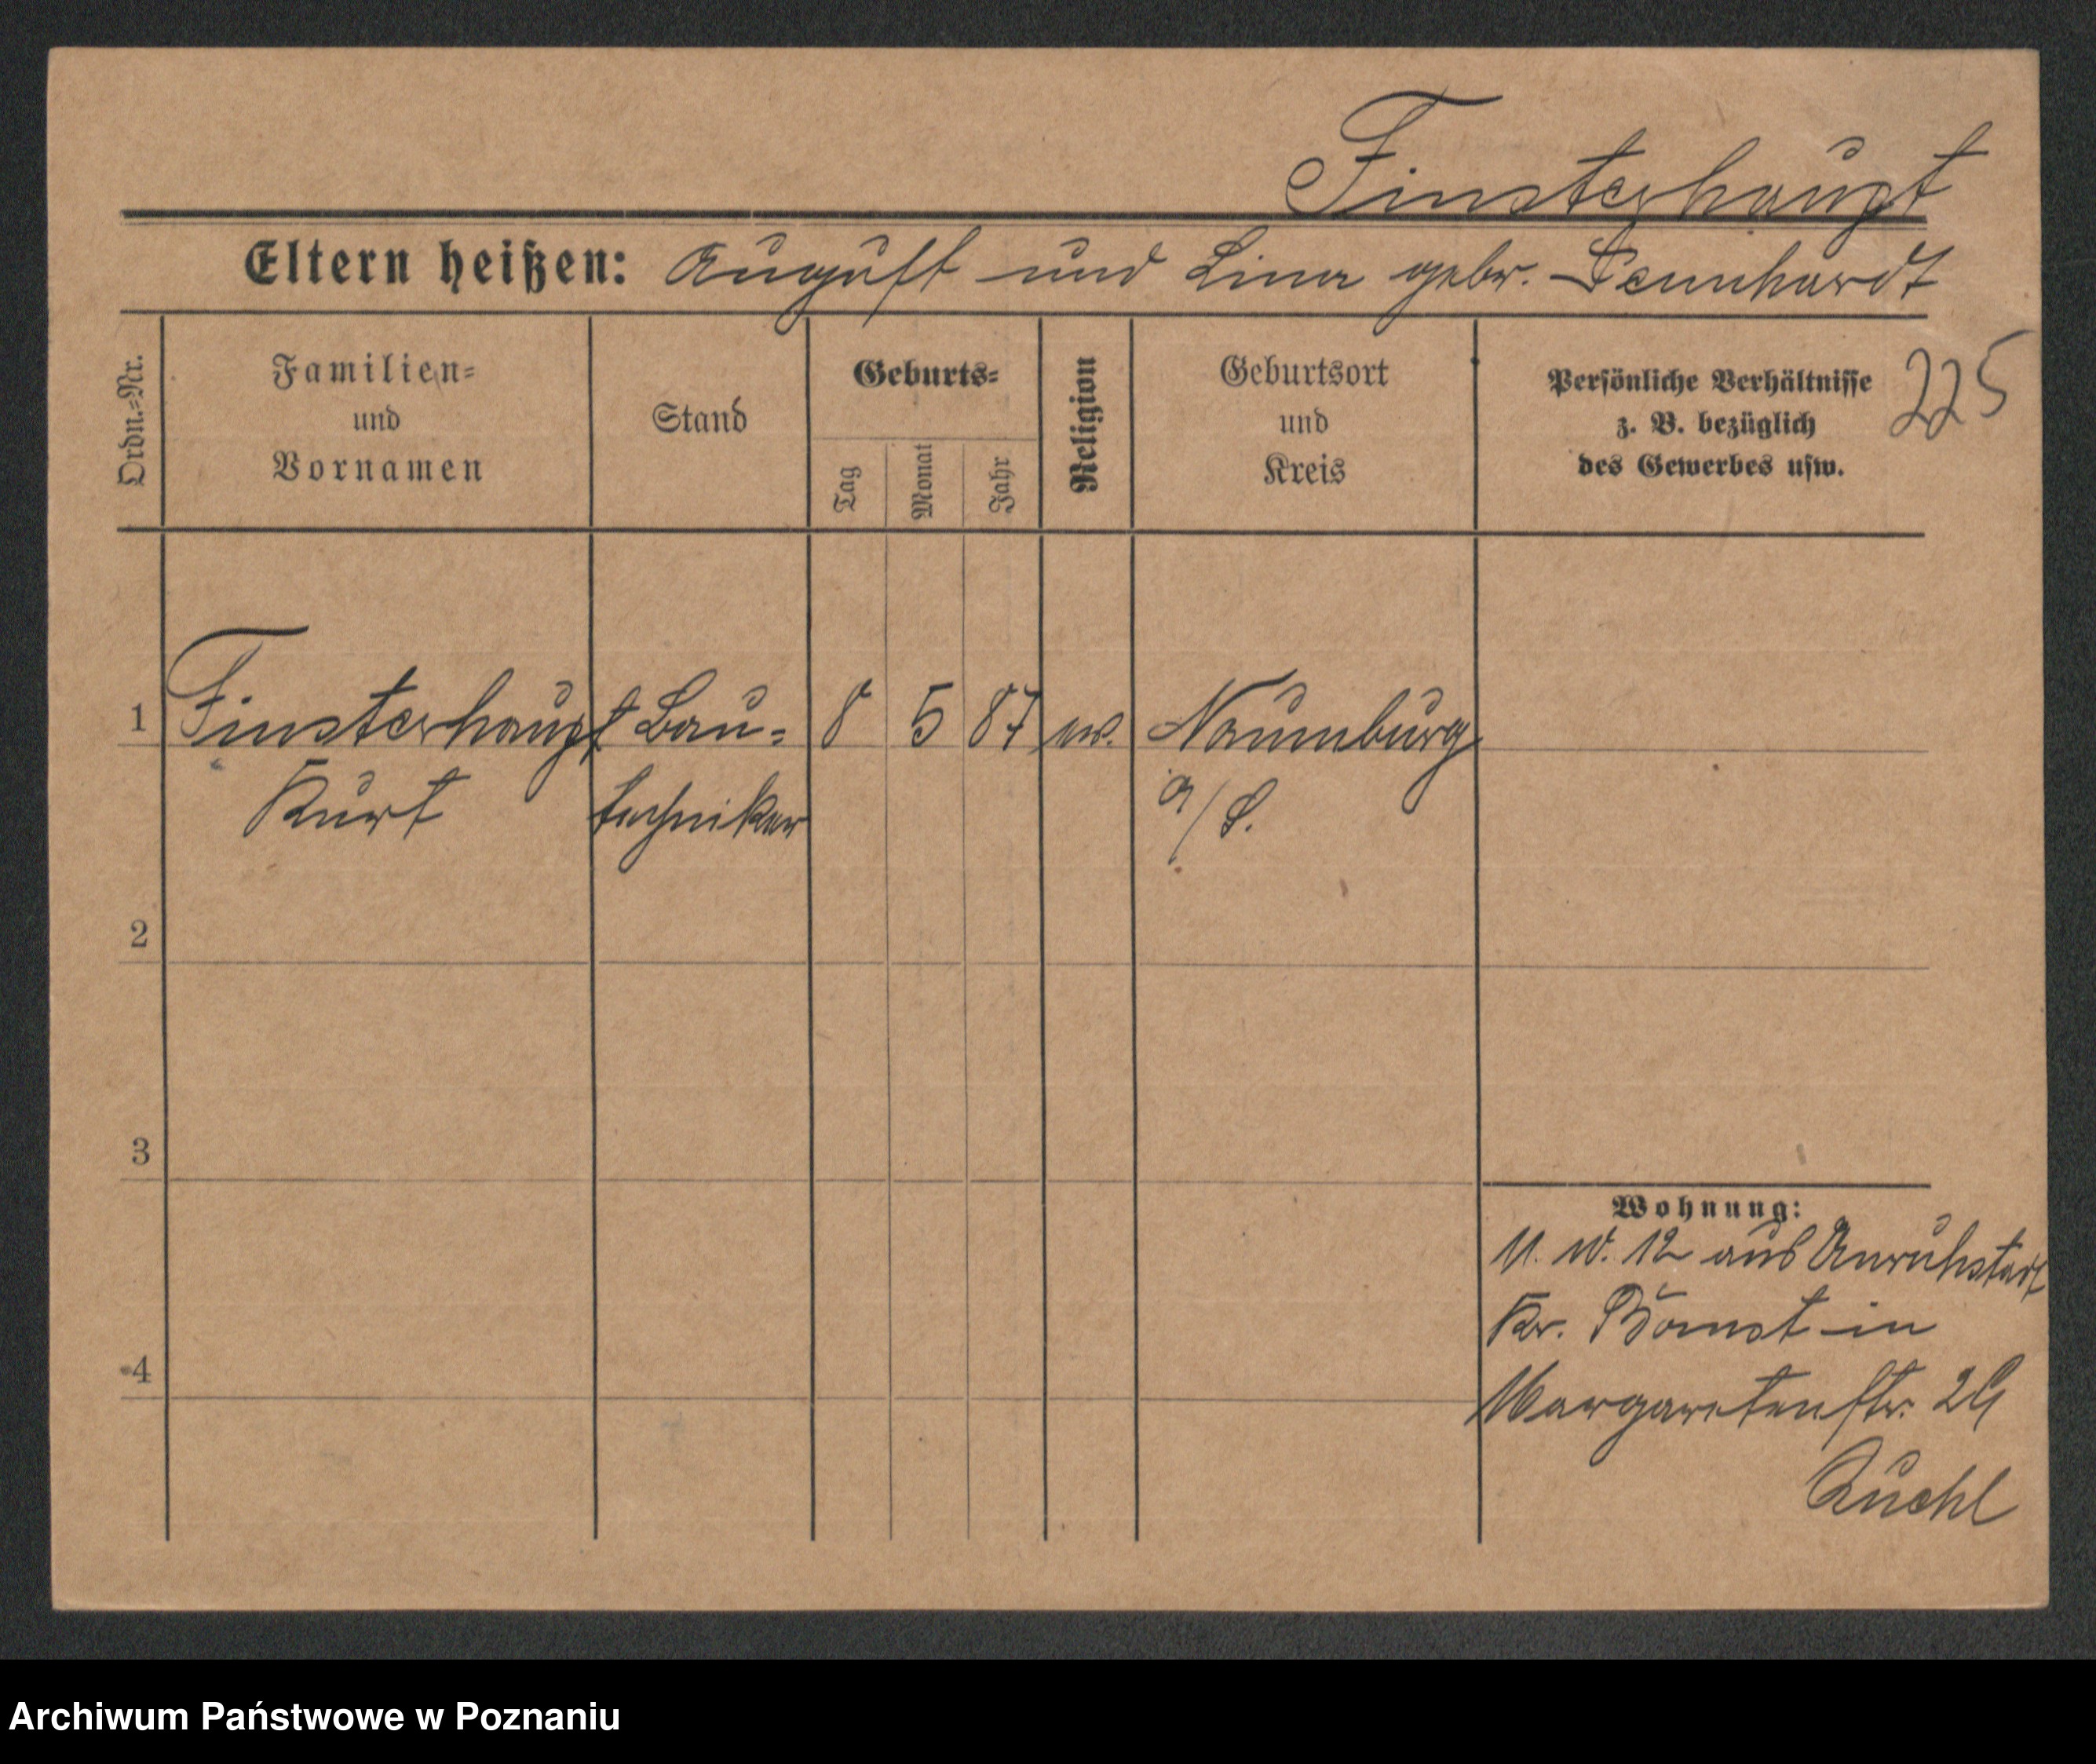 Finsterhaupt
Eltern heißen: August und Lina gebr. Lennhardt
225
Ordn.=Nr.
Familien=
und
Vornamen
Stand
Geburts=
Tag
Monat
Jahr
Religion
Geburtsort
und
Kreis
Persönliche Verhältnisse
z. B. bezüglich
des Gewerbes usw.
1 Finsterhaupt Bau= 8 5 87 ev. Naumburg
Kurt techniker a/S.
2
3
4
Wohnung:
11. IV. 12 aus
Kr. Bomst in
Margaretenstr. 29
Ruehl
Archiwum Państwowe w Poznaniu